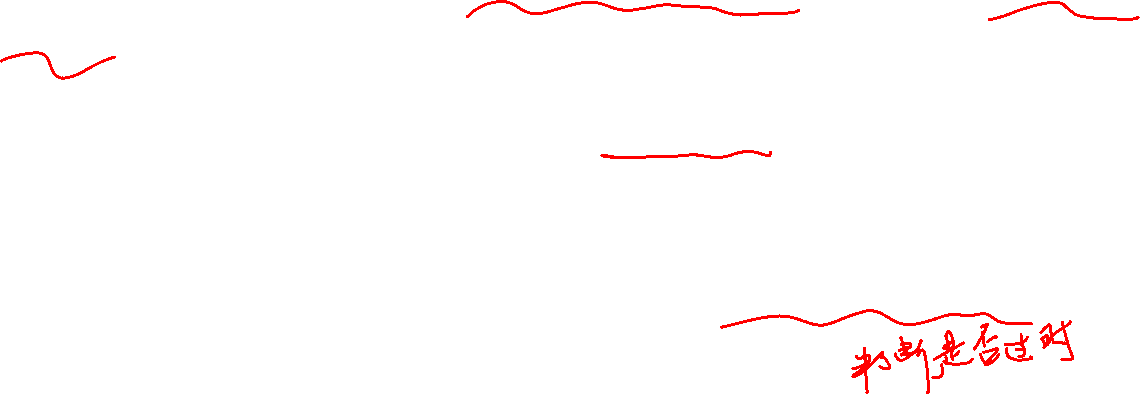 判断是否过时